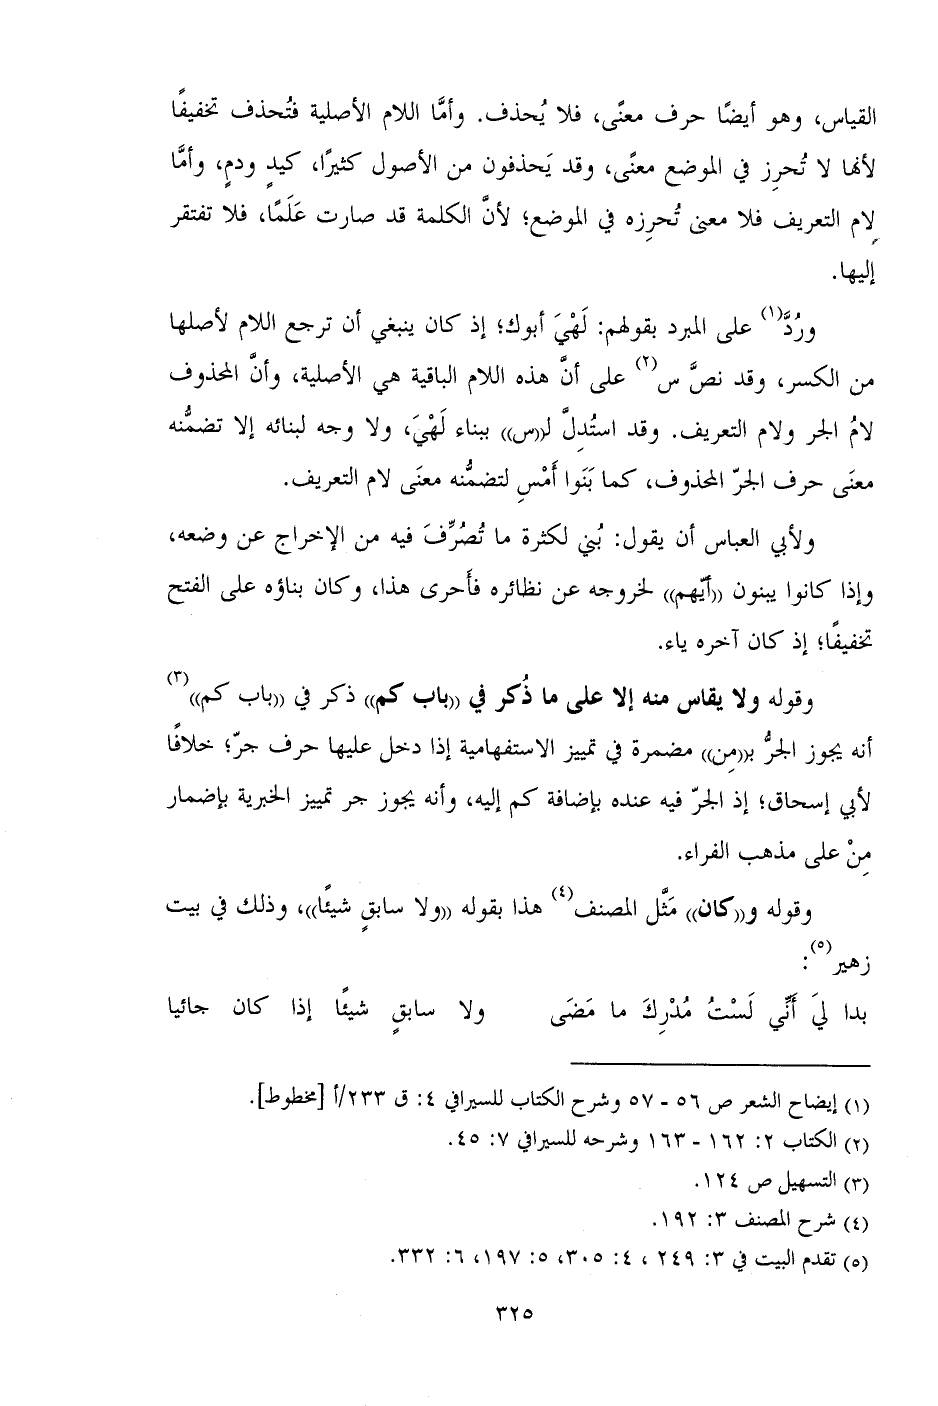 القياس، وهو أيضًا حرف معنًى، فلا يُحذف. وأمَّا اللام الأصلية فتُحذف تخفيفًا
لأنها لا تُحرِز في الموضع معنًى، وقد يَحذفون من الأصول كثيرًا، كيدٍ ودمٍ، وأمَّا
لام التعريف فلا معنى تُحرِزه في الموضع؛ لأنَّ الكلمة قد صارت عَلَمًا، فلا تفتقر
إليها.
ورُدَّ(١) على المبرد بقولهم: لَهْيَ أبوك؛ إذ كان ينبغي أن ترجع اللام لأصلها
من الكسر، وقد نصَّ س(٢) على أنَّ هذه اللام الباقية هي الأصلية، وأنَّ المحذوف
لامُ الجر ولام التعريف. وقد استُدِلَّ لـ((س)) ببناء لَهْيَ، ولا وجه لبنائه إلا تضمُّنه
معنَى حرف الجرّ المحذوف، كما بَنَوا أَمْسِ لتضمُّنه معنَى لام التعريف.
ولأبي العباس أن يقول: بُني لكثرة ما تُصُرِّفَ فيه من الإخراج عن وضعه،
وإذا كانوا يبنون ((أيّهم)) لخروجه عن نظائره فأَحرى هذا، وكان بناؤه على الفتح
تخفيفًا؛ إذ كان آخره ياء.
وقوله ولا يقاس منه إلا على ما ذُكر في ((باب كم)) ذكر في ((باب كم))(٣)
أنه يجوز الجرُّ بـ((مِن)) مضمرة في تمييز الاستفهامية إذا دخل عليها حرف جرّ؛ خلافًا
لأبي إسحاق؛ إذ الجرّ فيه عنده بإضافة كم إليه، وأنه يجوز جر تمييز الخبرية بإضمار
مِنْ على مذهب الفراء.
وقوله و((كان)) مَثَّل المصنف(٤) هذا بقوله ((ولا سابقٍ شيئًا))، وذلك في بيت
زهير(٥):
بدا ليَ أَنِّي لَسْتُ مُدْرِكَ ما مَضَى ولا سابقٍ شيئًا إذا كان جائيا
(١) إيضاح الشعر ص ٥٦ - ٥٧ وشرح الكتاب للسيرافي ٤: ق ٢٣٣/أ [مخطوط].
(٢) الكتاب ٢: ١٦٢ - ١٦٣ وشرحه للسيرافي ٧: ٤٥.
(٣) التسهيل ص ١٢٤.
(٤) شرح المصنف ٣: ١٩٢.
(٥) تقدم البيت في ٣: ٢٤٩ ، ٤: ٣٠٥، ٥: ١٩٧، ٦: ٣٣٢.
٣٢٥